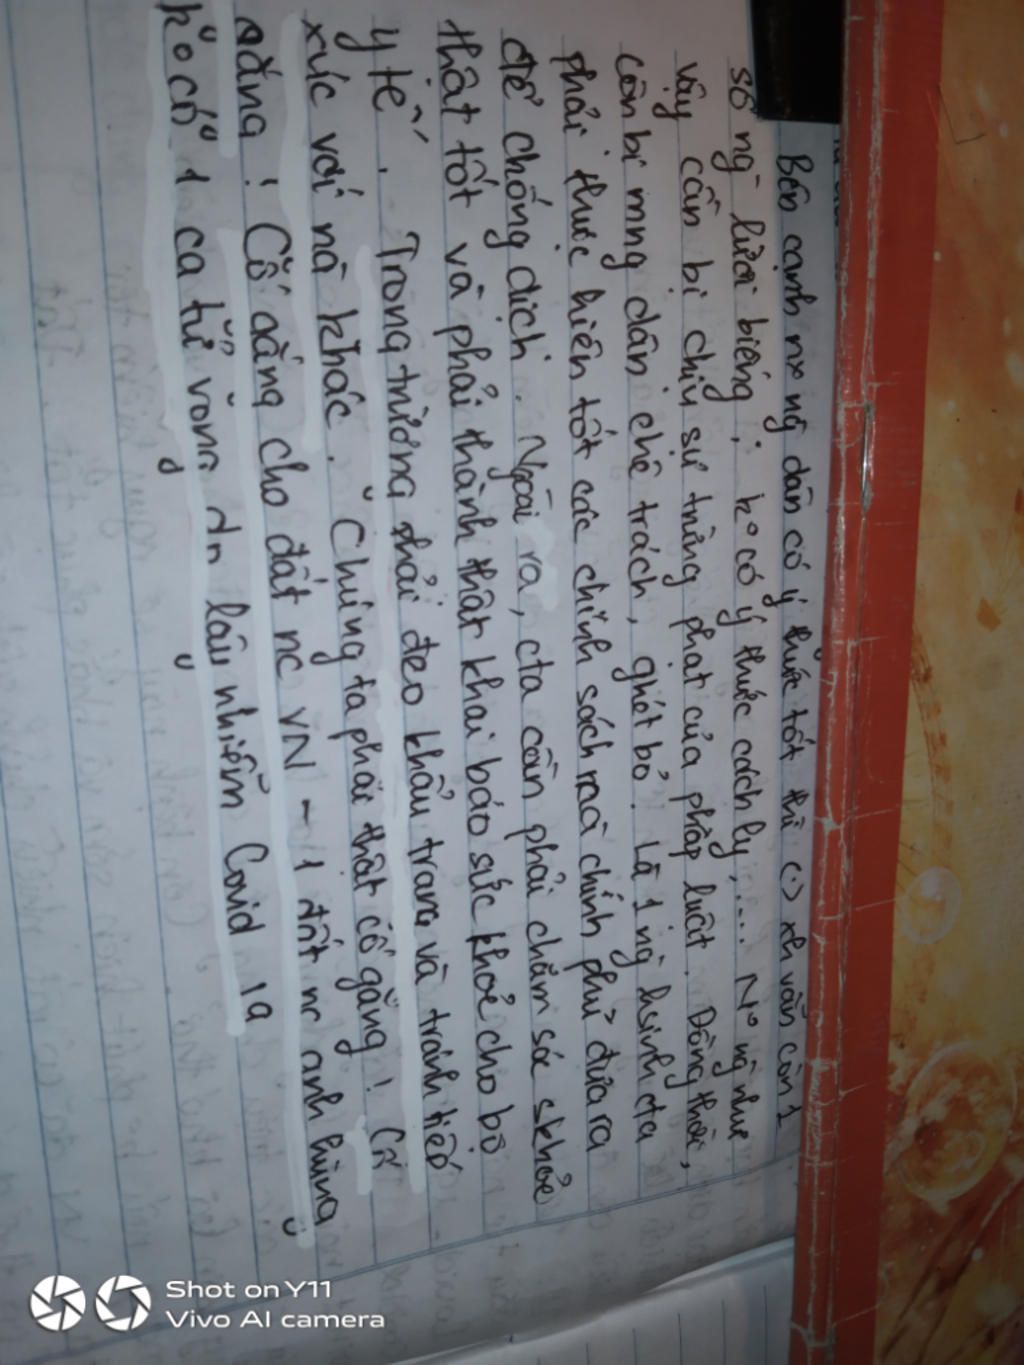 Bên cạnh nx ng dân có ý thức tốt thì (-) xh vẫn còn 1
số ng lười biếng, ko có ý thức cách ly,... N° ng như
vậy cần bị chịu sự trừng phạt của pháp luật. Đồng thời,
còn bị mng dân chê trách, ghét bỏ. Là 1 ng hsinh cta
phải thực hiện tốt các chính sách mà chính phủ đưa ra
để chống dịch. Ngoài ra, cta cần phải chăm sóc skhỏe
thật tốt và phải thành thật khai báo sức khỏe cho bộ
y tế. Trong trường phải đeo khẩu trang và tránh tiếp
xúc với nà khác. Chúng ta phải thật cố gắng! Cố
gắng! Cố gắng cho đất nc VN - 1 đất nc anh hùng
ko có 1 ca tử vong do lây nhiễm Covid 19
Shot on Y11
Vivo AI camera